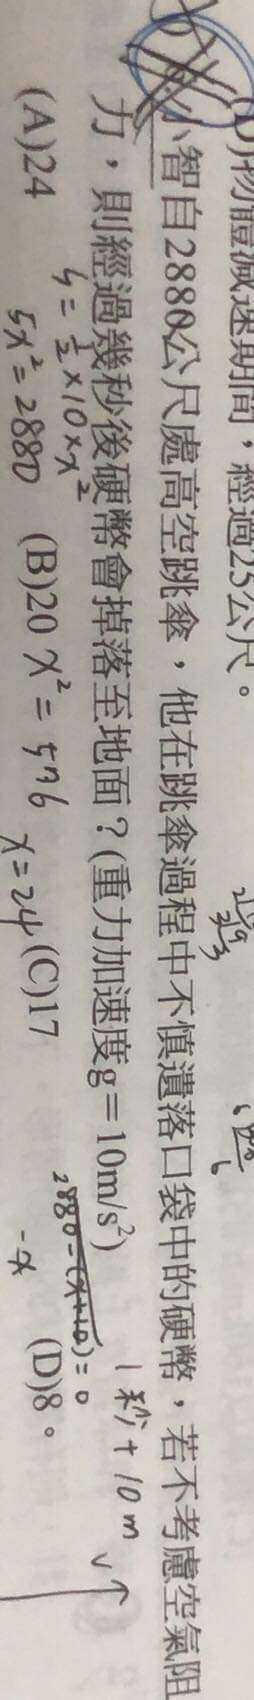 (D)物體減速期間，經過25公尺。
小智自2880公尺處高空跳傘，他在跳傘過程中不慎遺落口袋中的硬幣，若不考慮空氣阻
力，則經過幾秒後硬幣會掉落至地面？(重力加速度g＝10m/s²)
1秒+10m
S = 1/2 × 10 × x²
2880-(x+10)=0
(A)24 (B)20 (C)17 (D)8。
5x² = 2880 x² = 576 x = 24
-x